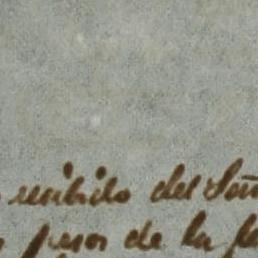 recibido del Señ
pesos de la